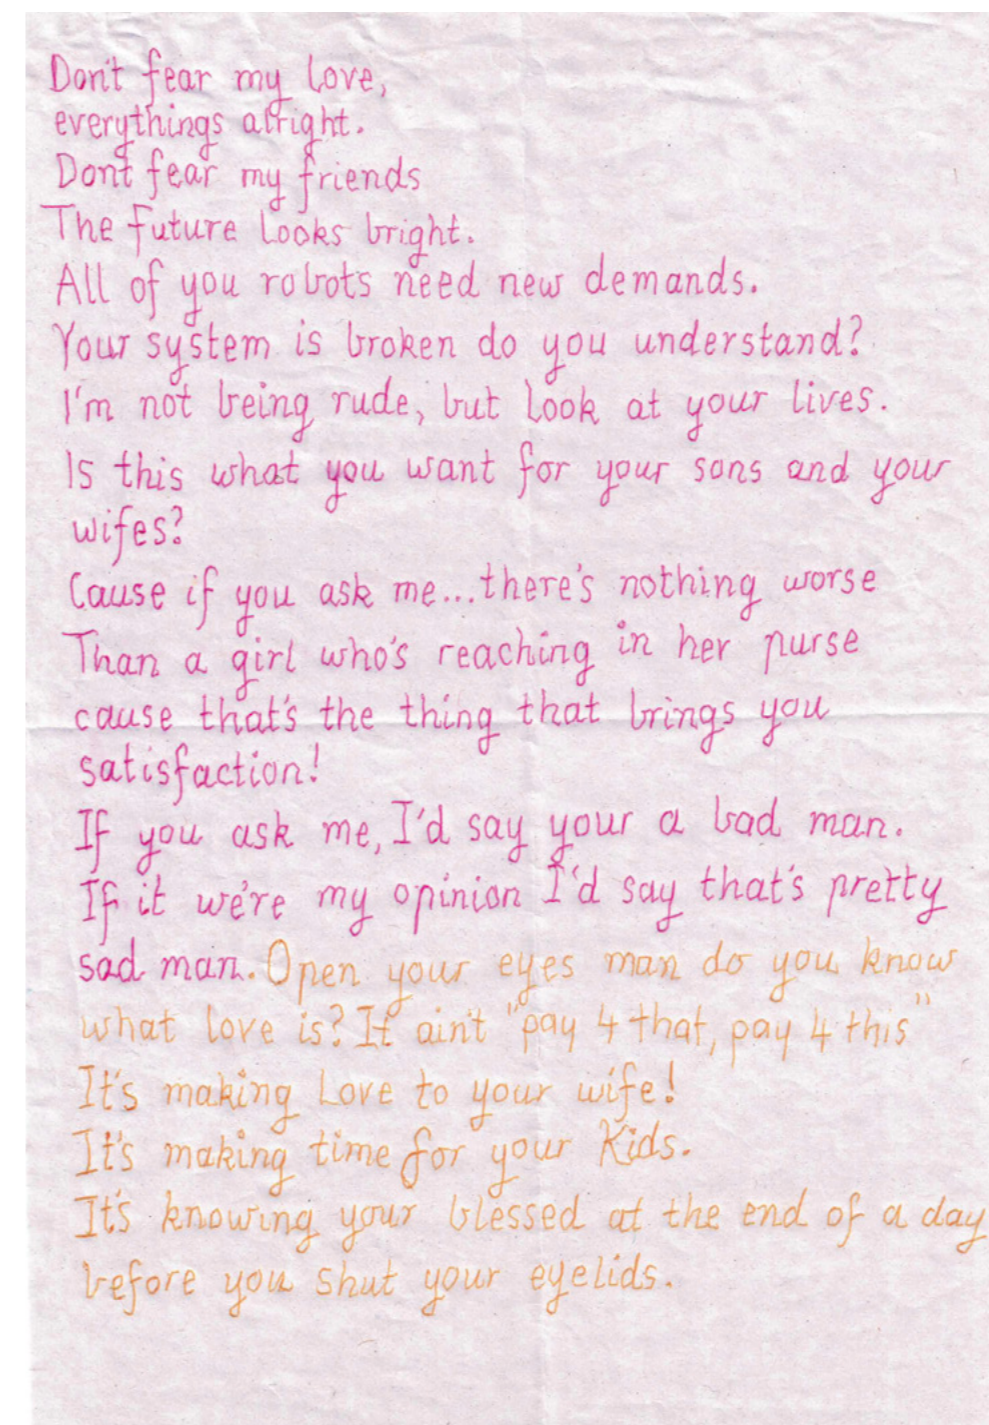 Don't fear my love,
everythings alright.
Dont fear my friends
The future looks bright.
All of you robots need new demands.
Your system is broken do you understand?
I'm not being rude, but look at your lives.
Is this what you want for your sons and your
wifes?
Cause if you ask me...there's nothing worse
Than a girl who's reaching in her purse
cause that's the thing that brings you
satisfaction!
If you ask me, I'd say your a bad man.
If it we're my opinion I'd say that's pretty
sad man. Open your eyes man do you know
what love is? It ain't "pay 4 that, pay 4 this"
It's making Love to your wife!
It's making time for your Kids.
It's knowing your blessed at the end of a day
before you shut your eyelids.